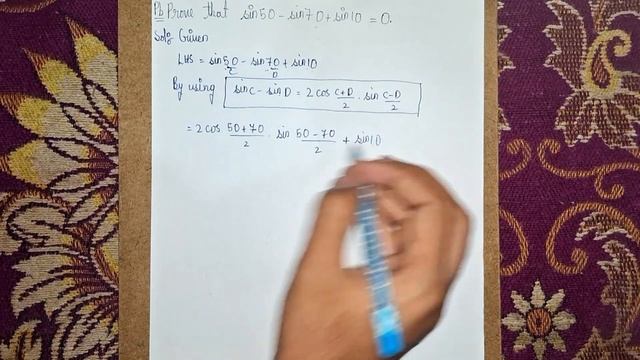 Pb Prove that sin50 - sin70 + sin10 = 0.
Solg Given
LHS = sin50 - sin70 + sin10
C D
By using sinC - sinD = 2 cos C+D/2 . sin C-D/2
= 2 cos 50+70/2 . sin 50-70/2 + sin10